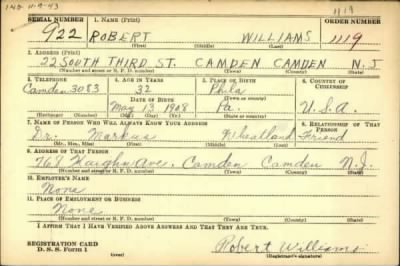 IND. 11-9-43 1119
SERIAL NUMBER 1. NAME (Print) ORDER NUMBER
922 ROBERT WILLIAMS 1119
(First) (Middle) (Last)
2. ADDRESS (Print)
22 SOUTH THIRD ST. CAMDEN CAMDEN N.J
(Number and street or R. F. D. number) (Town) (County) (State)
3. TELEPHONE 4. AGE IN YEARS 5. PLACE OF BIRTH 6. COUNTRY OF CITIZENSHIP
Camden 3083 32 Phila
DATE OF BIRTH (Town or county)
May 13, 1908 Pa. U.S.A.
(Exchange) (Number) (Mo.) (Day) (Yr.) (State or country)
7. NAME OF PERSON WHO WILL ALWAYS KNOW YOUR ADDRESS 8. RELATIONSHIP OF THAT PERSON
Dr. Markus Wheatland Friend
(Mr., Mrs., Miss) (First) (Middle) (Last)
9. ADDRESS OF THAT PERSON
768 Ave. Camden Camden N.J.
(Number and street or R. F. D. number) (Town) (County) (State)
10. EMPLOYER'S NAME
None
11. PLACE OF EMPLOYMENT OR BUSINESS
None
(Number and street or R. F. D. number) (Town) (County) (State)
I AFFIRM THAT I HAVE VERIFIED ABOVE ANSWERS AND THAT THEY ARE TRUE.
REGISTRATION CARD
D. S. S. Form 1 (over) Robert Williams
(Registrant's signature)